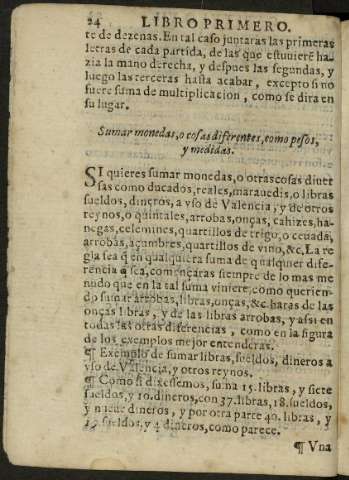 24 LIBRO PRIMERO.
te de dezenas. En tal caso juntaras las primeras
letras de cada partida, de las que estuuierẽ ha-
zia la mano derecha, y despues las segundas, y
luego las terceras hasta acabar, excepto si no
fuere suma de multiplicacion, como se dira en
su lugar.
Sumar monedas, o cosas diferentes, como pesos,
y medidas.
SI quieres sumar monedas, o otras cosas diuer
sas como ducados, reales, marauedis, o libras
sueldos, dineros, a vso de Valencia, y de otros
reynos, o quintales, arrobas, onças, cahizes, ha-
negas, celemines, quartillos de trigo, o ceuada,
arrobas, açumbres, quartillos de vino, &c. La re
gla sea q̃ en qualquiera suma de qualquier dife-
rencia q̃ sea, començaras siempre de lo mas me
nudo que en la tal suma viniere, como querien-
do sumar arrobas, libras, onças, &c. haras de las
onças libras, y de las libras arrobas, y assi en
todas las otras diferencias, como en la figura
de los exemplos mejor entenderas.
¶ Exemplo de sumar libras, sueldos, dineros a
vso de Valencia, y otros reynos.
¶ Como si dixessemos, suma 15. libras, y siete
sueldos, y 10. dineros, con 37. libras, 18. sueldos,
y nueue dineros, y por otra parte 40. libras, y
sueldos, y 4 dineros, como parece.
¶ Vna